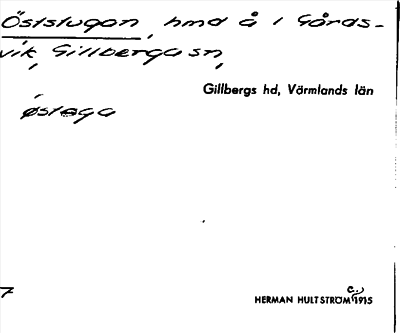 Öststugon, hmd å 1 Gårds-
vik, Gillberga sn,
Gillbergs hd, Värmlands län
østøga
7
HERMAN HULTSTRÖM c. 1915